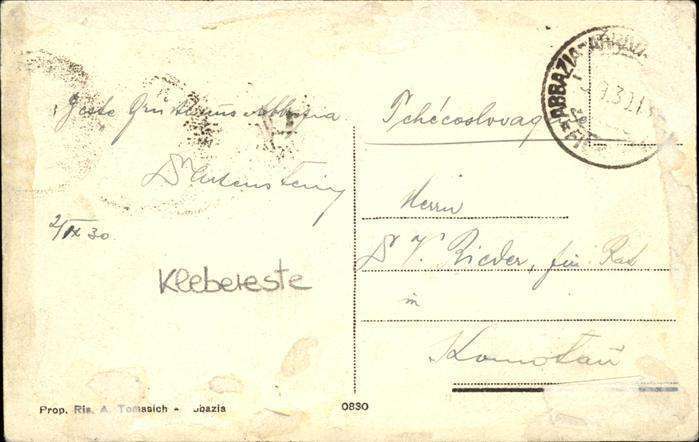 Beste Grüße aus Abbazia
Dr
2/IX 30
Klebereste
Prop. Ris. A. Tomasich - bbazia
0830
Tchécoslovaq
ABBAZIA
Herrn
Dr J. Rieder, fin Rat
in
Komotau